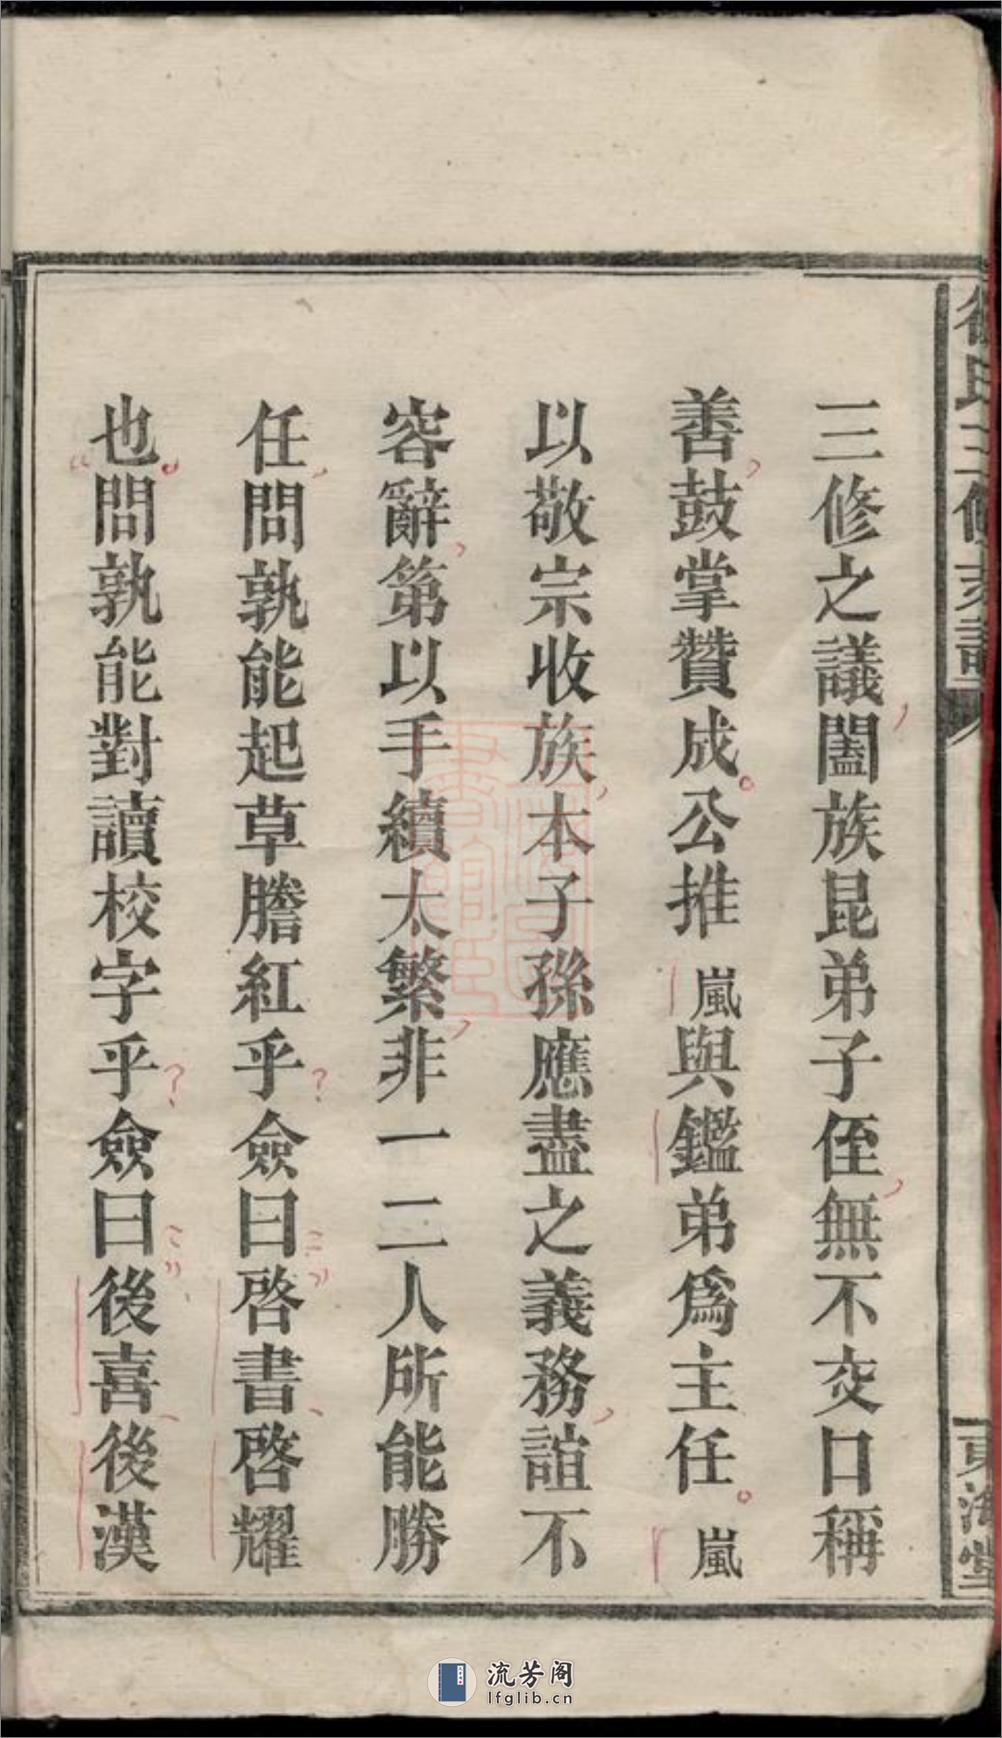 徐氏三修支譜
東海堂
三修之議闔族昆弟子侄無不交口稱
善鼓掌贊成公推嵐與鑑弟爲主任嵐
以敬宗收族本子孫應盡之義務誼不
容辭第以手續太繁非一二人所能勝
任問孰能起草謄紅乎僉曰啓書啓耀
也問孰能對讀校字乎僉曰後喜後漢
流芳阁
lfglib.cn